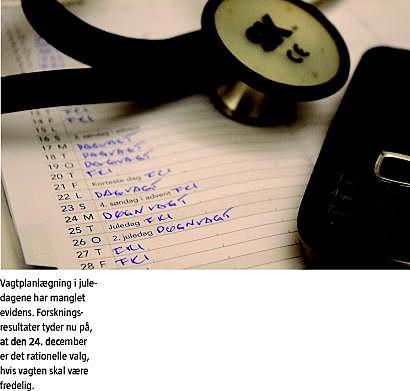 FRI
16 S 3. søndag i advent
17 M DAGVAGT
18 T DAGVAGT
19 O
20 T FRI
21 F Korteste dag FRI
22 L DAGVAGT
23 S 4. søndag i advent FRI
24 M DØGNVAGT
25 T Juledag FRI
26 O 2. juledag DØGNVAGT
27 T FRI
28 F FRI
Vagtplanlægning i jule-
dagene har manglet
evidens. Forsknings-
resultater tyder nu på,
at den 24. december
er det rationelle valg,
hvis vagten skal være
fredelig.